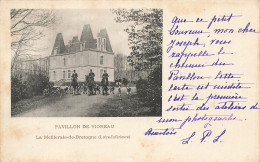 PAVILLON DE VIOREAU
La Meilleraie-de-Bretagne (Loire-Inférieure)
Que ce petit
souvenir mon cher
Joseph, vous
rappelle le
chemin du
Pavillon cette
carte est inédite
c'est la première
sortie des ateliers de
mon photographe.
Amitiés
L. P. L.